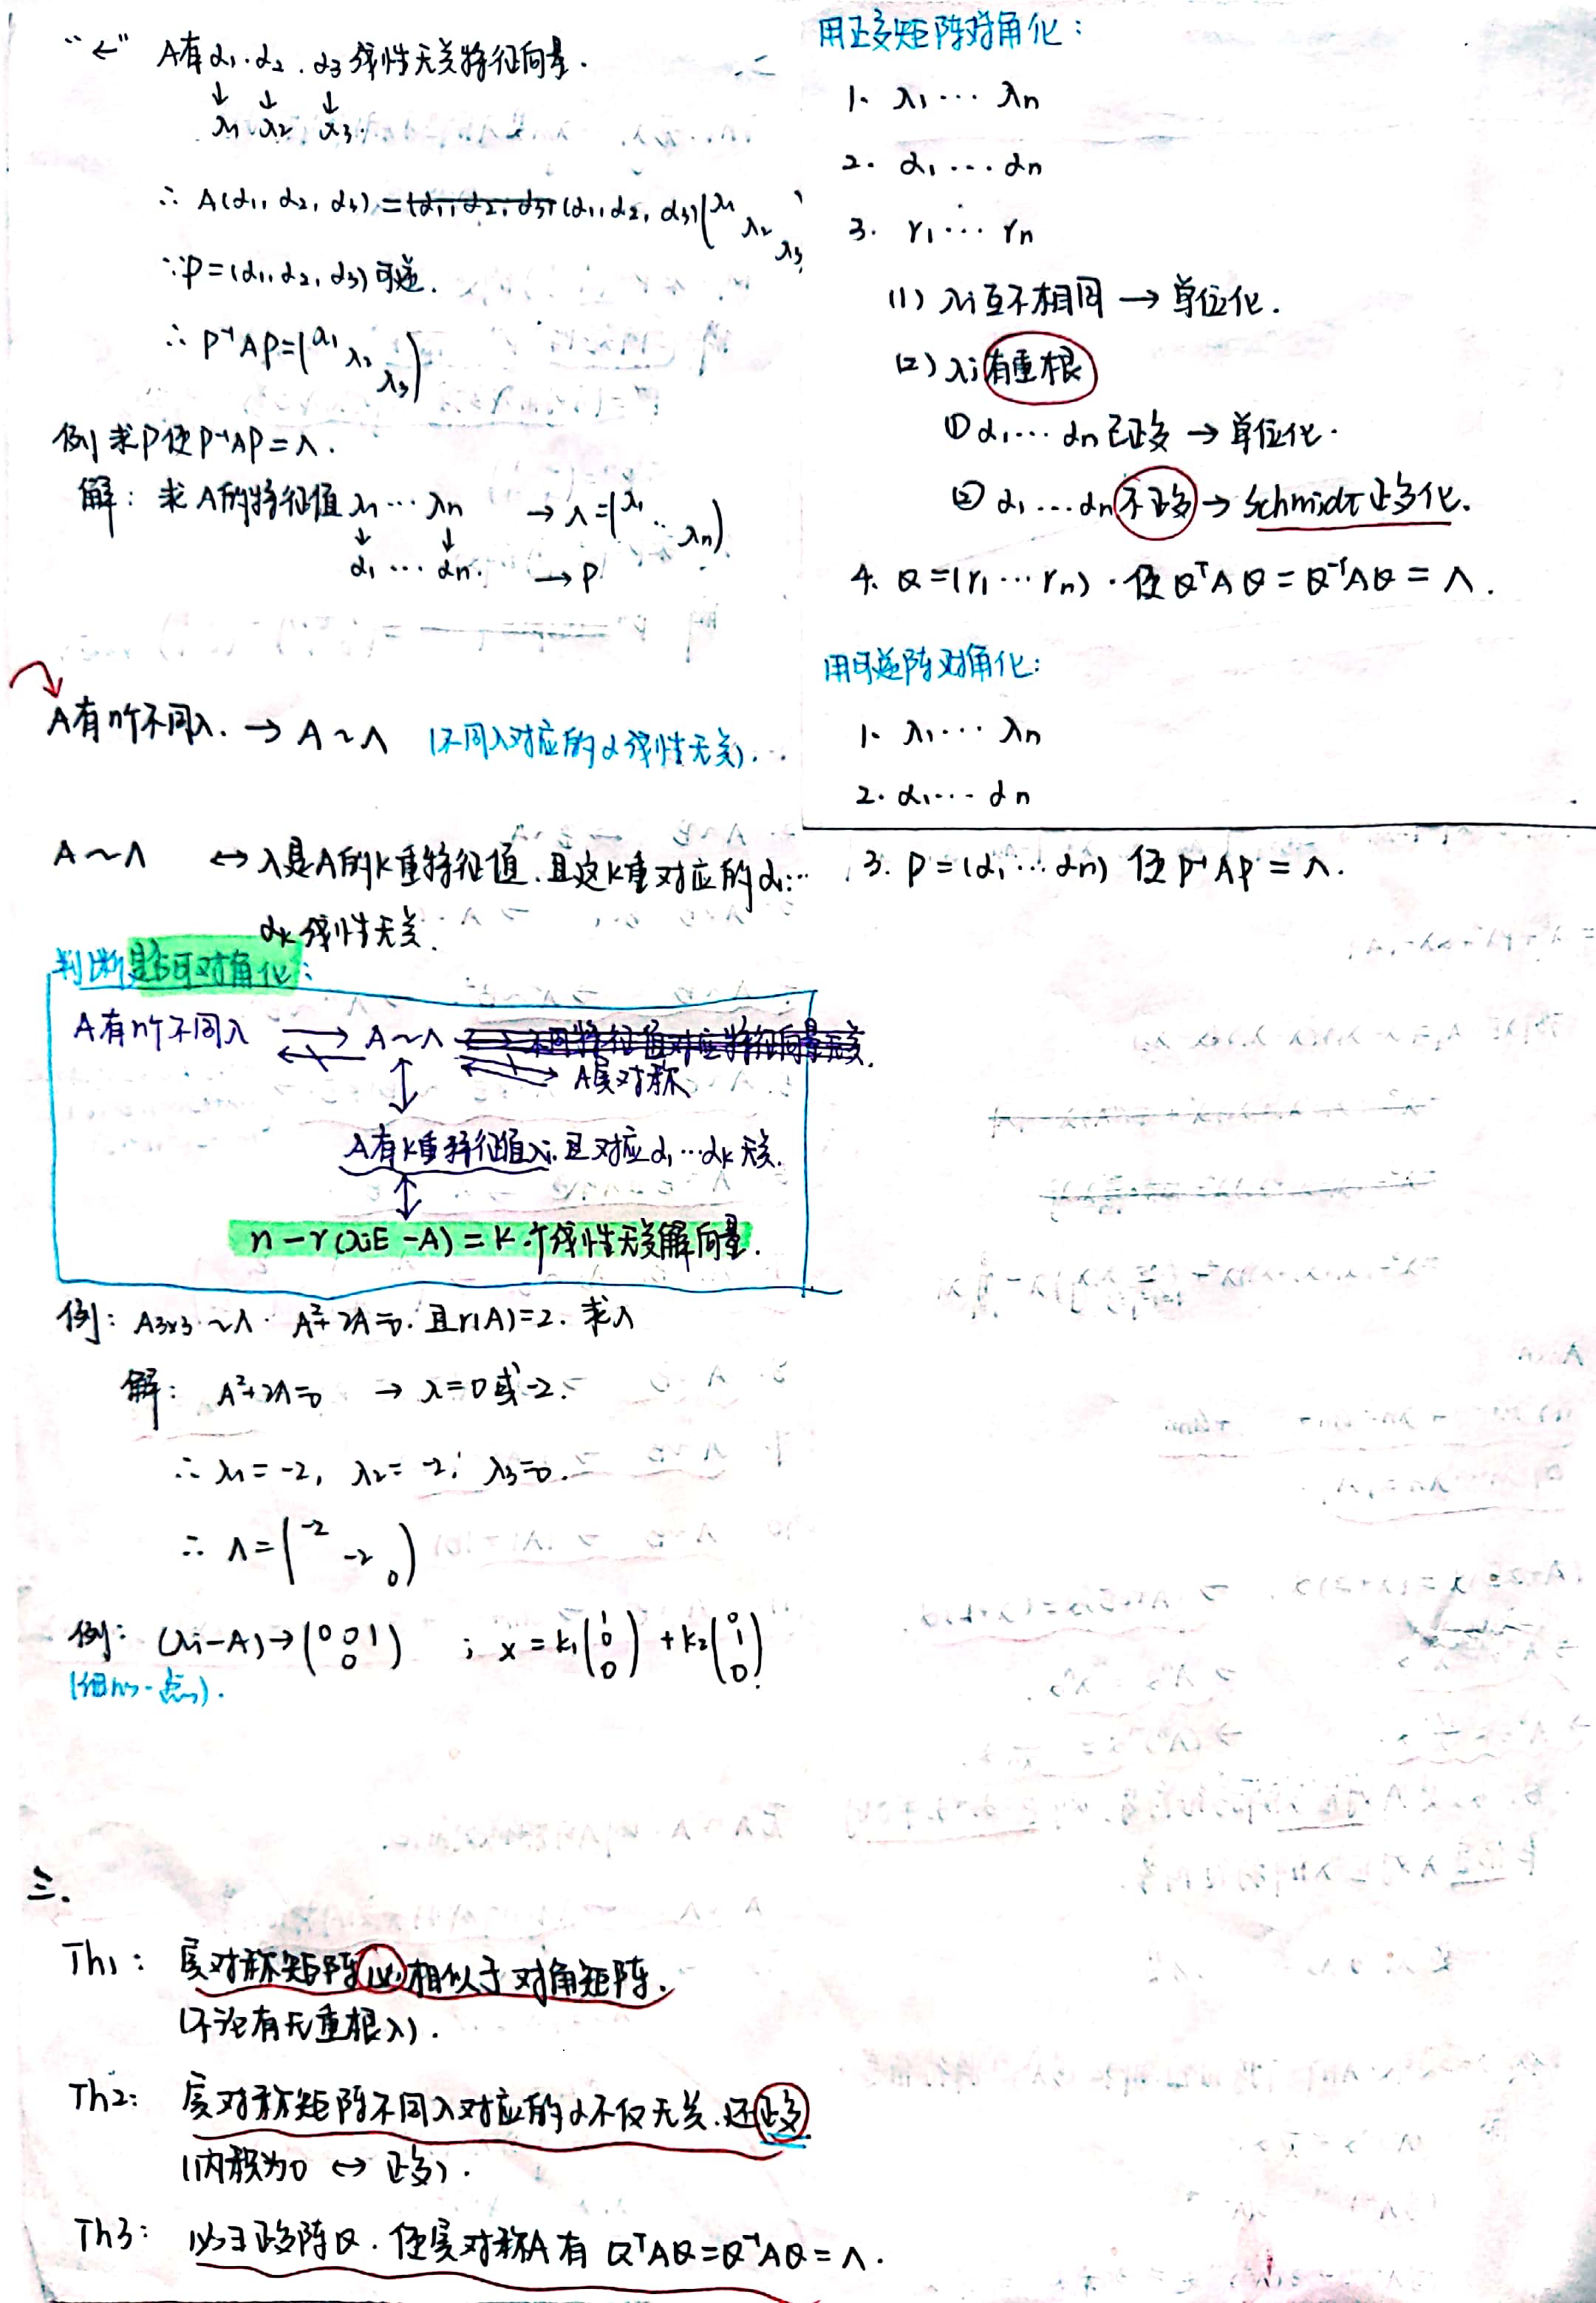 “←” A有α₁.α₂.α₃线性无关特征向量.
↓ ↓ ↓
λ₁ λ₂ λ₃.
∴ A(α₁, α₂, α₃) = (α₁, α₂, α₃) (α₁, α₂, α₃) (λ₁ λ₂ λ₃)
∵ P=(α₁, α₂, α₃) 可逆.
∴ P⁻¹AP=(λ₁ λ₂ λ₃)
例 求P使P⁻¹AP=Λ.
解: 求A的特征值 λ₁ ⋯ λn → Λ=(λ₁ ⋱ λn)
↓ ↓
α₁ ⋯ αn. → P
A有n个不同λ. → A~Λ (不同λ对应的α线性无关).
A~Λ ↔ λ是A的k重特征值.且这k重对应的α₁⋯
αk线性无关.
判断是否可对角化:
A有n个不同λ → A~Λ ↔ 不同特征值对应特征向量无关.
A实对称
↕
A有k重特征值λi.且对应α₁⋯αk无关.
↕
n-r(λiE-A)=k个线性无关解向量.
例: A3x3~Λ. A²+2A=0.且r(A)=2.求Λ
解: A²+2A=0 → λ=0或-2.
∴ λ₁=-2, λ₂=-2; λ₃=0.
∴ Λ=(-2 -2 0)
例: (λi-A)→(0 0 1 0) ; x=k₁(1 0 0)+k₂(0 1 0)
三.
Th1: 实对称矩阵必相似于对角矩阵.
(不论有无重根λ).
Th2: 实对称矩阵不同λ对应的α不仅无关.还正交
(内积为0 ↔ 正交).
Th3: 必∃正交阵Q.使实对称A有QᵀAQ=Q⁻¹AQ=Λ.
用正交矩阵对角化:
1. λ₁⋯λn
2. α₁⋯αn
3. γ₁⋯γn
(1) λi互不相同 → 单位化.
(2) λi有重根
① α₁⋯αn已正交 → 单位化.
② α₁⋯αn不正交 → Schmidt正交化.
4. Q=(γ₁⋯γn).使QᵀAQ=Q⁻¹AQ=Λ.
用可逆阵对角化:
1. λ₁⋯λn
2. α₁⋯αn
3. P=(α₁⋯αn) 使P⁻¹AP=Λ.